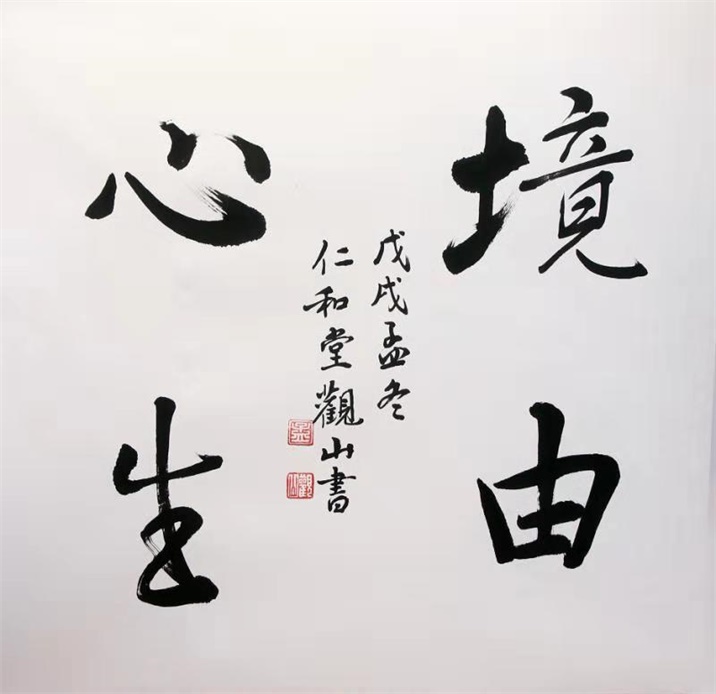 境由
心生
戊戌孟冬
仁和堂觀山書